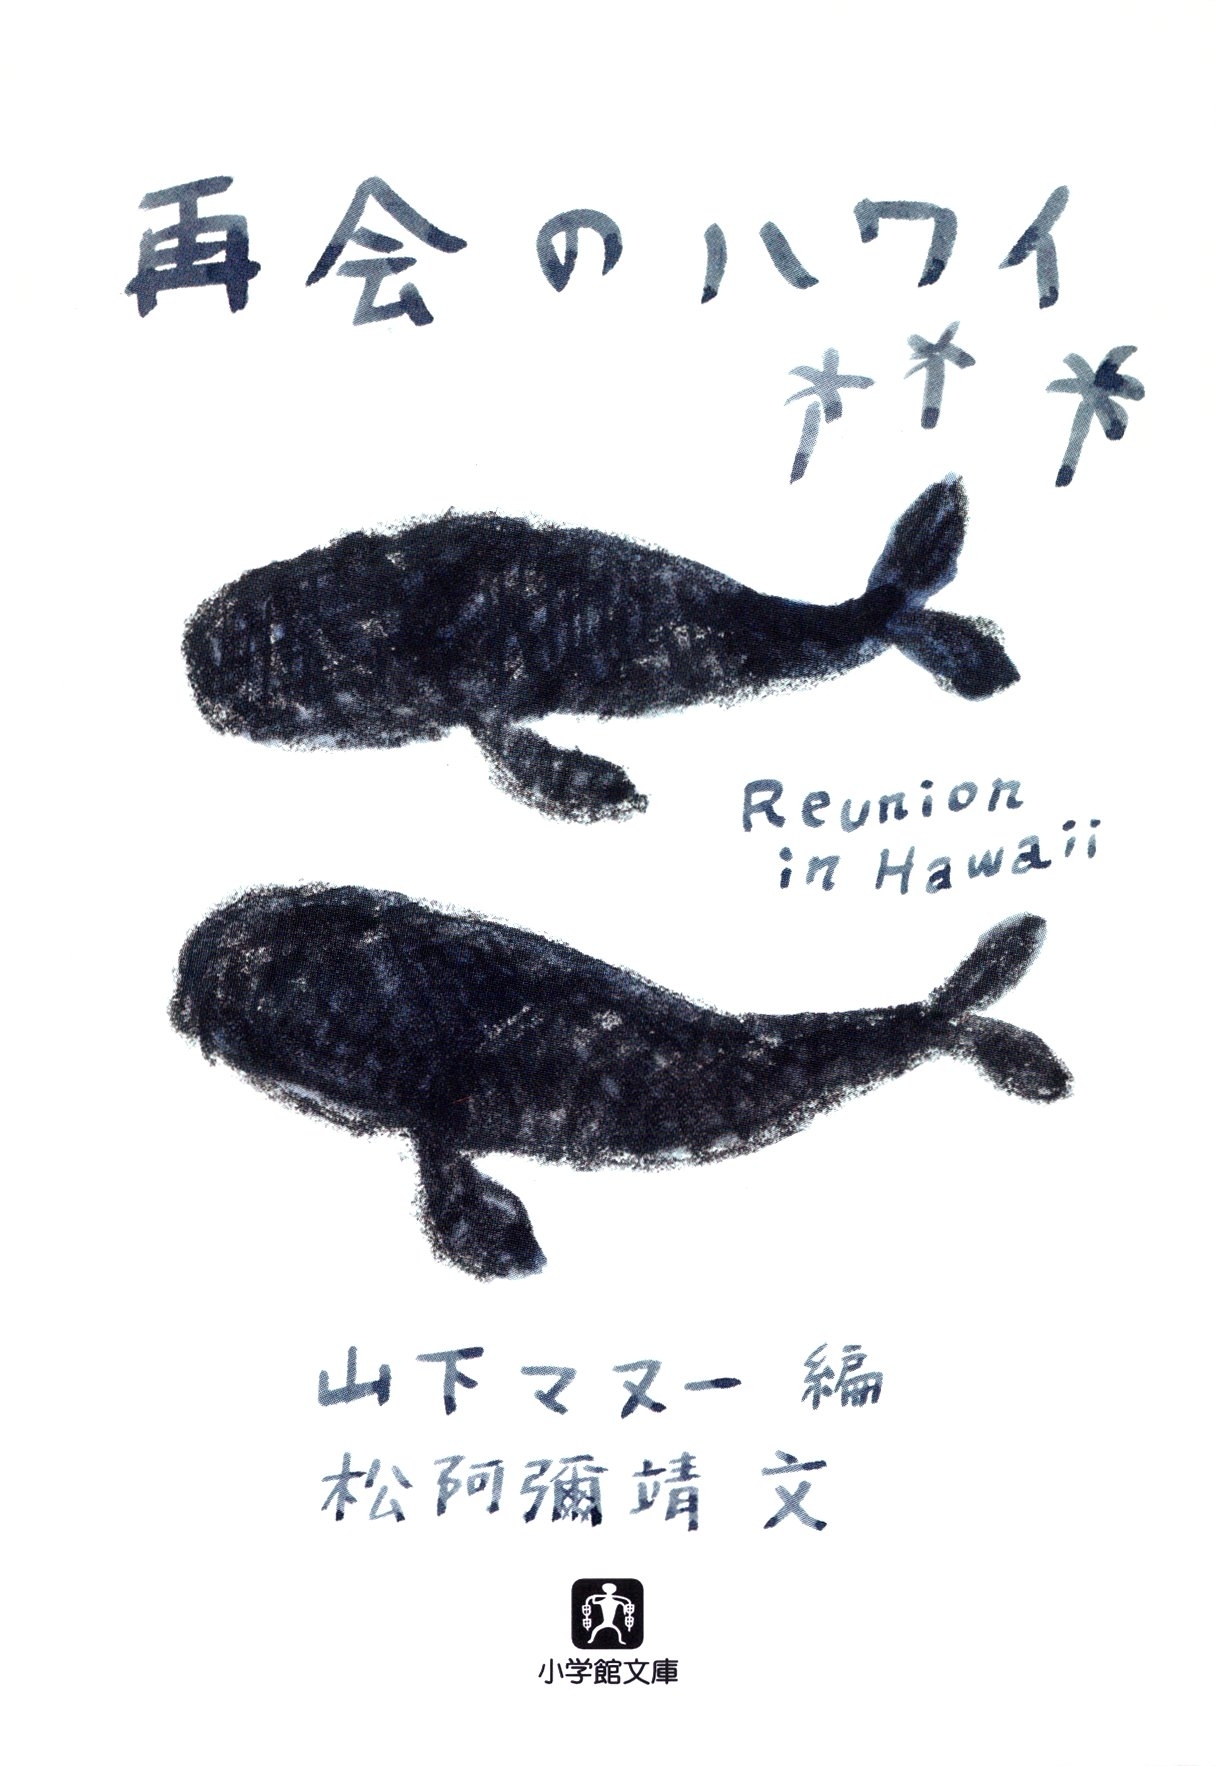 再会のハワイ
Reunion
in Hawaii
山下マヌー 編
松阿彌靖 文
小学館文庫